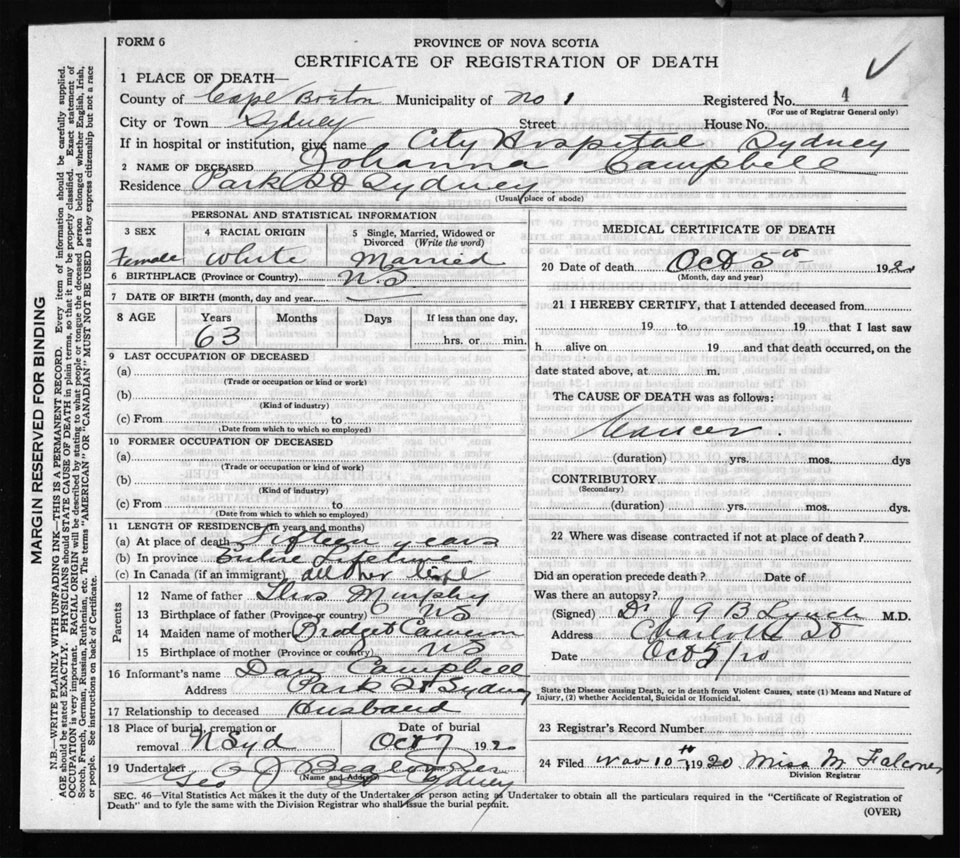 FORM 6
PROVINCE OF NOVA SCOTIA
CERTIFICATE OF REGISTRATION OF DEATH
1 PLACE OF DEATH—
County of Cape Breton Municipality of No 1 Registered No. 4
(For use of Registrar General only)
City or Town Sydney Street House No.
If in hospital or institution, give name City Hospital Sydney
2 NAME OF DECEASED Johanna Campbell
Residence Park St Sydney
(Usual place of abode)
PERSONAL AND STATISTICAL INFORMATION
3 SEX
Female
4 RACIAL ORIGIN
White
5 Single, Married, Widowed or Divorced (Write the word)
Married
6 BIRTHPLACE (Province or Country) N.S
7 DATE OF BIRTH (month, day and year)
8 AGE Years Months Days If less than one day,
63 hrs. or min.
9 LAST OCCUPATION OF DECEASED
(a)
(Trade or occupation or kind or work)
(b)
(Kind of industry)
(c) From to
(Date from which to which so employed)
10 FORMER OCCUPATION OF DECEASED
(a)
(Trade or occupation or kind of work)
(b)
(Kind of industry)
(c) From to
(Date from which to which so employed)
11 LENGTH OF RESIDENCE (In years and months)
(a) At place of death Fifteen years
(b) In province Entire Lifetime
(c) In Canada (if an immigrant) all her life
Parents
12 Name of father Thos Murphy
13 Birthplace of father (Province or country) NS
14 Maiden name of mother Bridget Cameron
15 Birthplace of mother (Province or country) NS
16 Informant's name Dan Campbell
Address Park St Sydney
17 Relationship to deceased Husband
18 Place of burial, cremation or removal N Syd
Date of burial Oct 7 192
19 Undertaker Geo J
(Name and Address) Sydney
MEDICAL CERTIFICATE OF DEATH
20 Date of death Oct 5th 192
(Month, day and year)
21 I HEREBY CERTIFY, that I attended deceased from
19 to 19 that I last saw
h alive on 19 and that death occurred, on the
date stated above, at m.
The CAUSE OF DEATH was as follows:
Cancer.
(duration) yrs. mos. dys
CONTRIBUTORY
(Secondary)
(duration) yrs. mos. dys.
22 Where was disease contracted if not at place of death?
Did an operation precede death? Date of
Was there an autopsy?
(Signed) Dr J G B Lynch M.D.
Address Charlotte St
Date Oct 5/20
State the Disease causing Death, or in death from Violent Causes, state (1) Means and Nature of
Injury, (2) whether Accidental, Suicidal or Homicidal.
23 Registrar's Record Number
24 Filed Nov 10th 1920 Miss M Falconer
Division Registrar
SEC. 46—Vital Statistics Act makes it the duty of the Undertaker or person acting as Undertaker to obtain all the particulars required in the "Certificate of Registration of
Death" and to fyle the same with the Division Registrar who shall issue the burial permit.
(OVER)
MARGIN RESERVED FOR BINDING
N.B.—WRITE PLAINLY WITH UNFADING INK—THIS IS A PERMANENT RECORD. Every item of information should be carefully supplied.
AGE should be stated EXACTLY. PHYSICIANS should STATE CAUSE OF DEATH in plain terms, so that it may be properly classified. Exact statement of
OCCUPATION is very important. RACIAL ORIGIN will be described by stating to what people or tongue the deceased person belonged whether English, Irish,
Scotch, French, German, Russian, Ruthenian, etc. The terms "AMERICAN" OR "CANADIAN" MUST NOT BE USED as they express citizenship but not a race
or people. See instructions on back of Certificate.